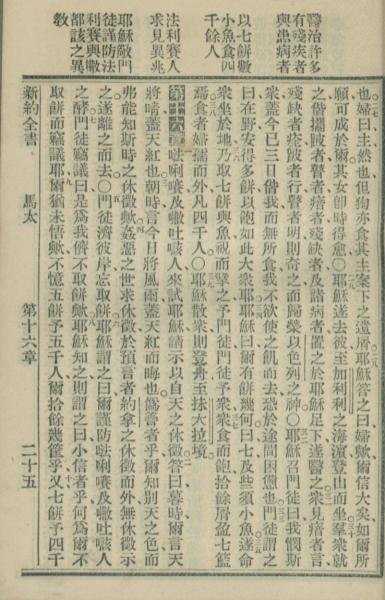 醫治許多
有殘疾者
與患病者
以七餅數
小魚食四
千餘人
法利賽人
求見異兆
耶穌敎門
徒謹防法
利賽與撒
都該之異
敎
也婦曰主然也但狗亦食其主案下之遺屑耶穌答之曰婦爾信大矣如爾所
願可成於爾其女卽時得愈〇耶穌遂去彼至加利利之海濱登山而坐羣衆就
之偕攜跛者瞽者瘖者殘缺者及諸病者置之於耶穌足下遂醫之衆見瘖者言
殘缺者痊跛者行瞽者明則奇之而歸榮以色列之神〇耶穌召門徒曰我憫斯
衆蓋今已三日偕我而無所食我不欲使之飢而去恐於途間困憊也門徒謂之
曰在野安得多餅以飽如此大衆耶穌曰爾有餅幾何曰七及些須小魚遂命
衆坐於地乃取七餅與魚祝而擘之予門徒門徒予衆衆食而飽拾餘屑盈七籃
焉食者婦孺而外凡四千人〇耶穌散衆則登舟至抹大拉境
第十六章 㘠唎賽及撒吐咳人來試耶穌請示以自天之休徵答曰暮時爾言天
將晴蓋天紅也朝時言今日將風雨蓋天紅而晦也僞善者乎爾知別天之色而
弗能知斯時之休徵歟姦惡之世求休徵於預言者約拿之休徵而外無休徵示
之遂離之而去〇門徒濟彼岸忘取餅耶穌謂之曰爾謹防㘠唎賽及撒吐咳人
之酵門徒竊議曰是爲我儕不取餅歟耶穌知之則謂之曰小信者乎何爲爾不
取餅而竊議耶爾猶未悟歟不憶五餅予五千人爾拾餘幾筐乎又七餅予四千
新約全書 馬太 第十六章 二十五